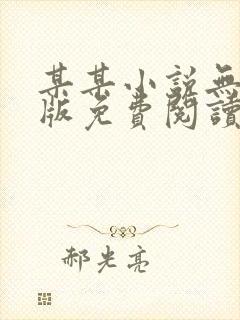 某某小説無
版免費閱讀
郝光亮